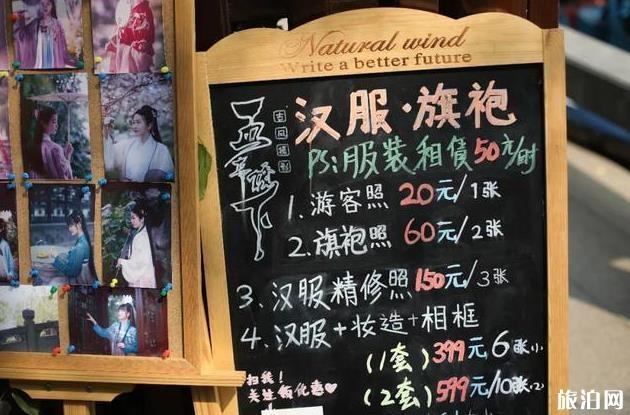 Natural wind
Write a better future
汉服·旗袍
古风摄影
PS:服装租赁50元/时
1.游客照 20元/1张
2.旗袍照 60元/2张
3、汉服精修照150元/3张
4、汉服+妆造+相框
(1套)399元6张
(2套)599元/10张
扫我!
关注有优惠
旅泊网